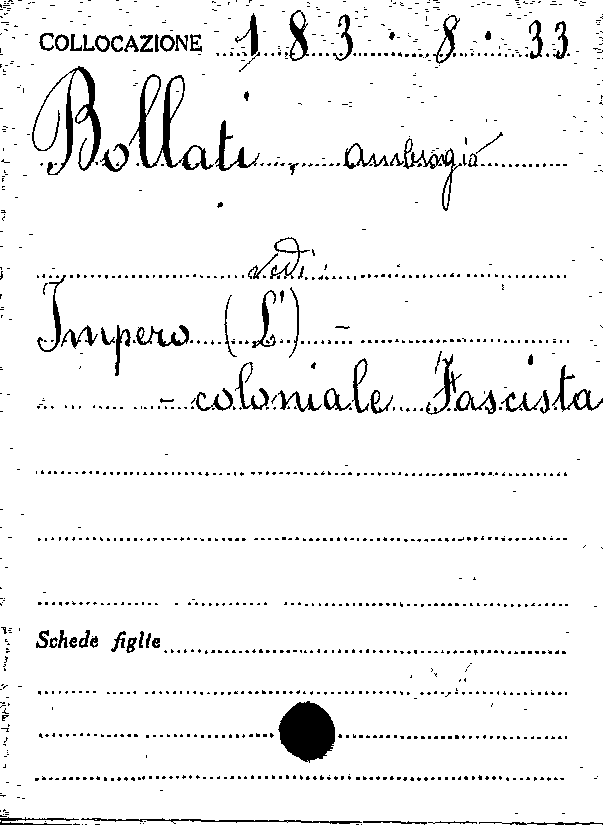 COLLOCAZIONE 183.8.33
Bollati, Ambrogio
vedi:
Impero (L') -
- coloniale Fascista
Schede figlie